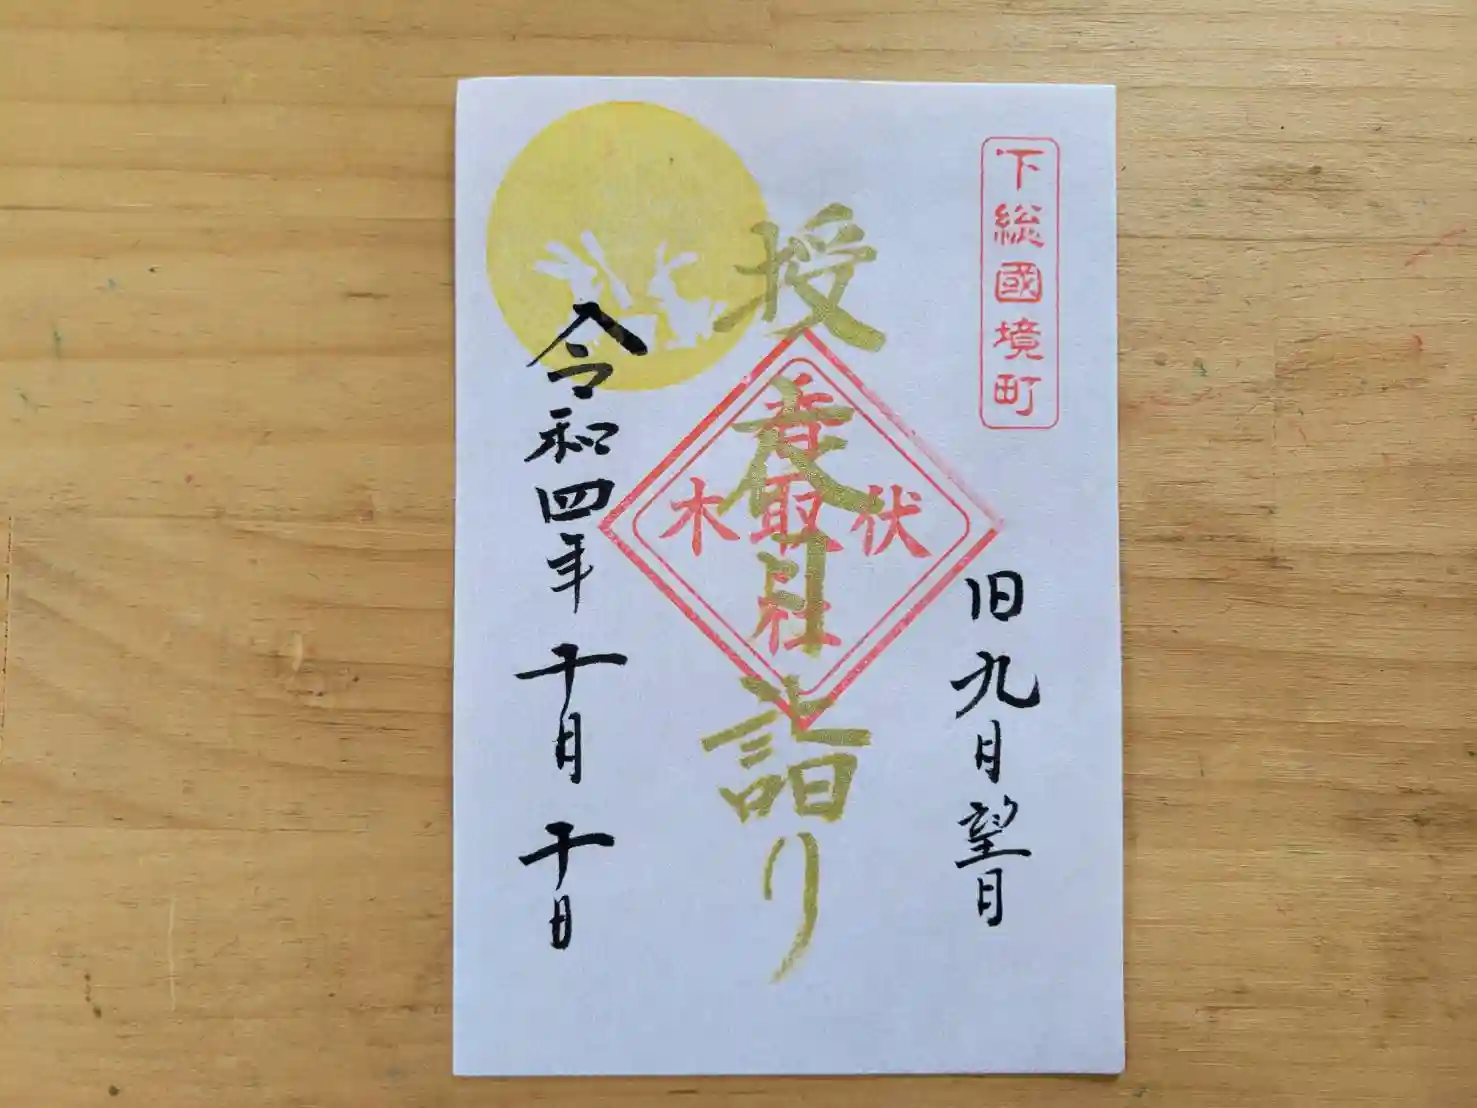 下総國境町
旧九月望日
授衣月詣り
伏木
香取社
令和四年十月十日